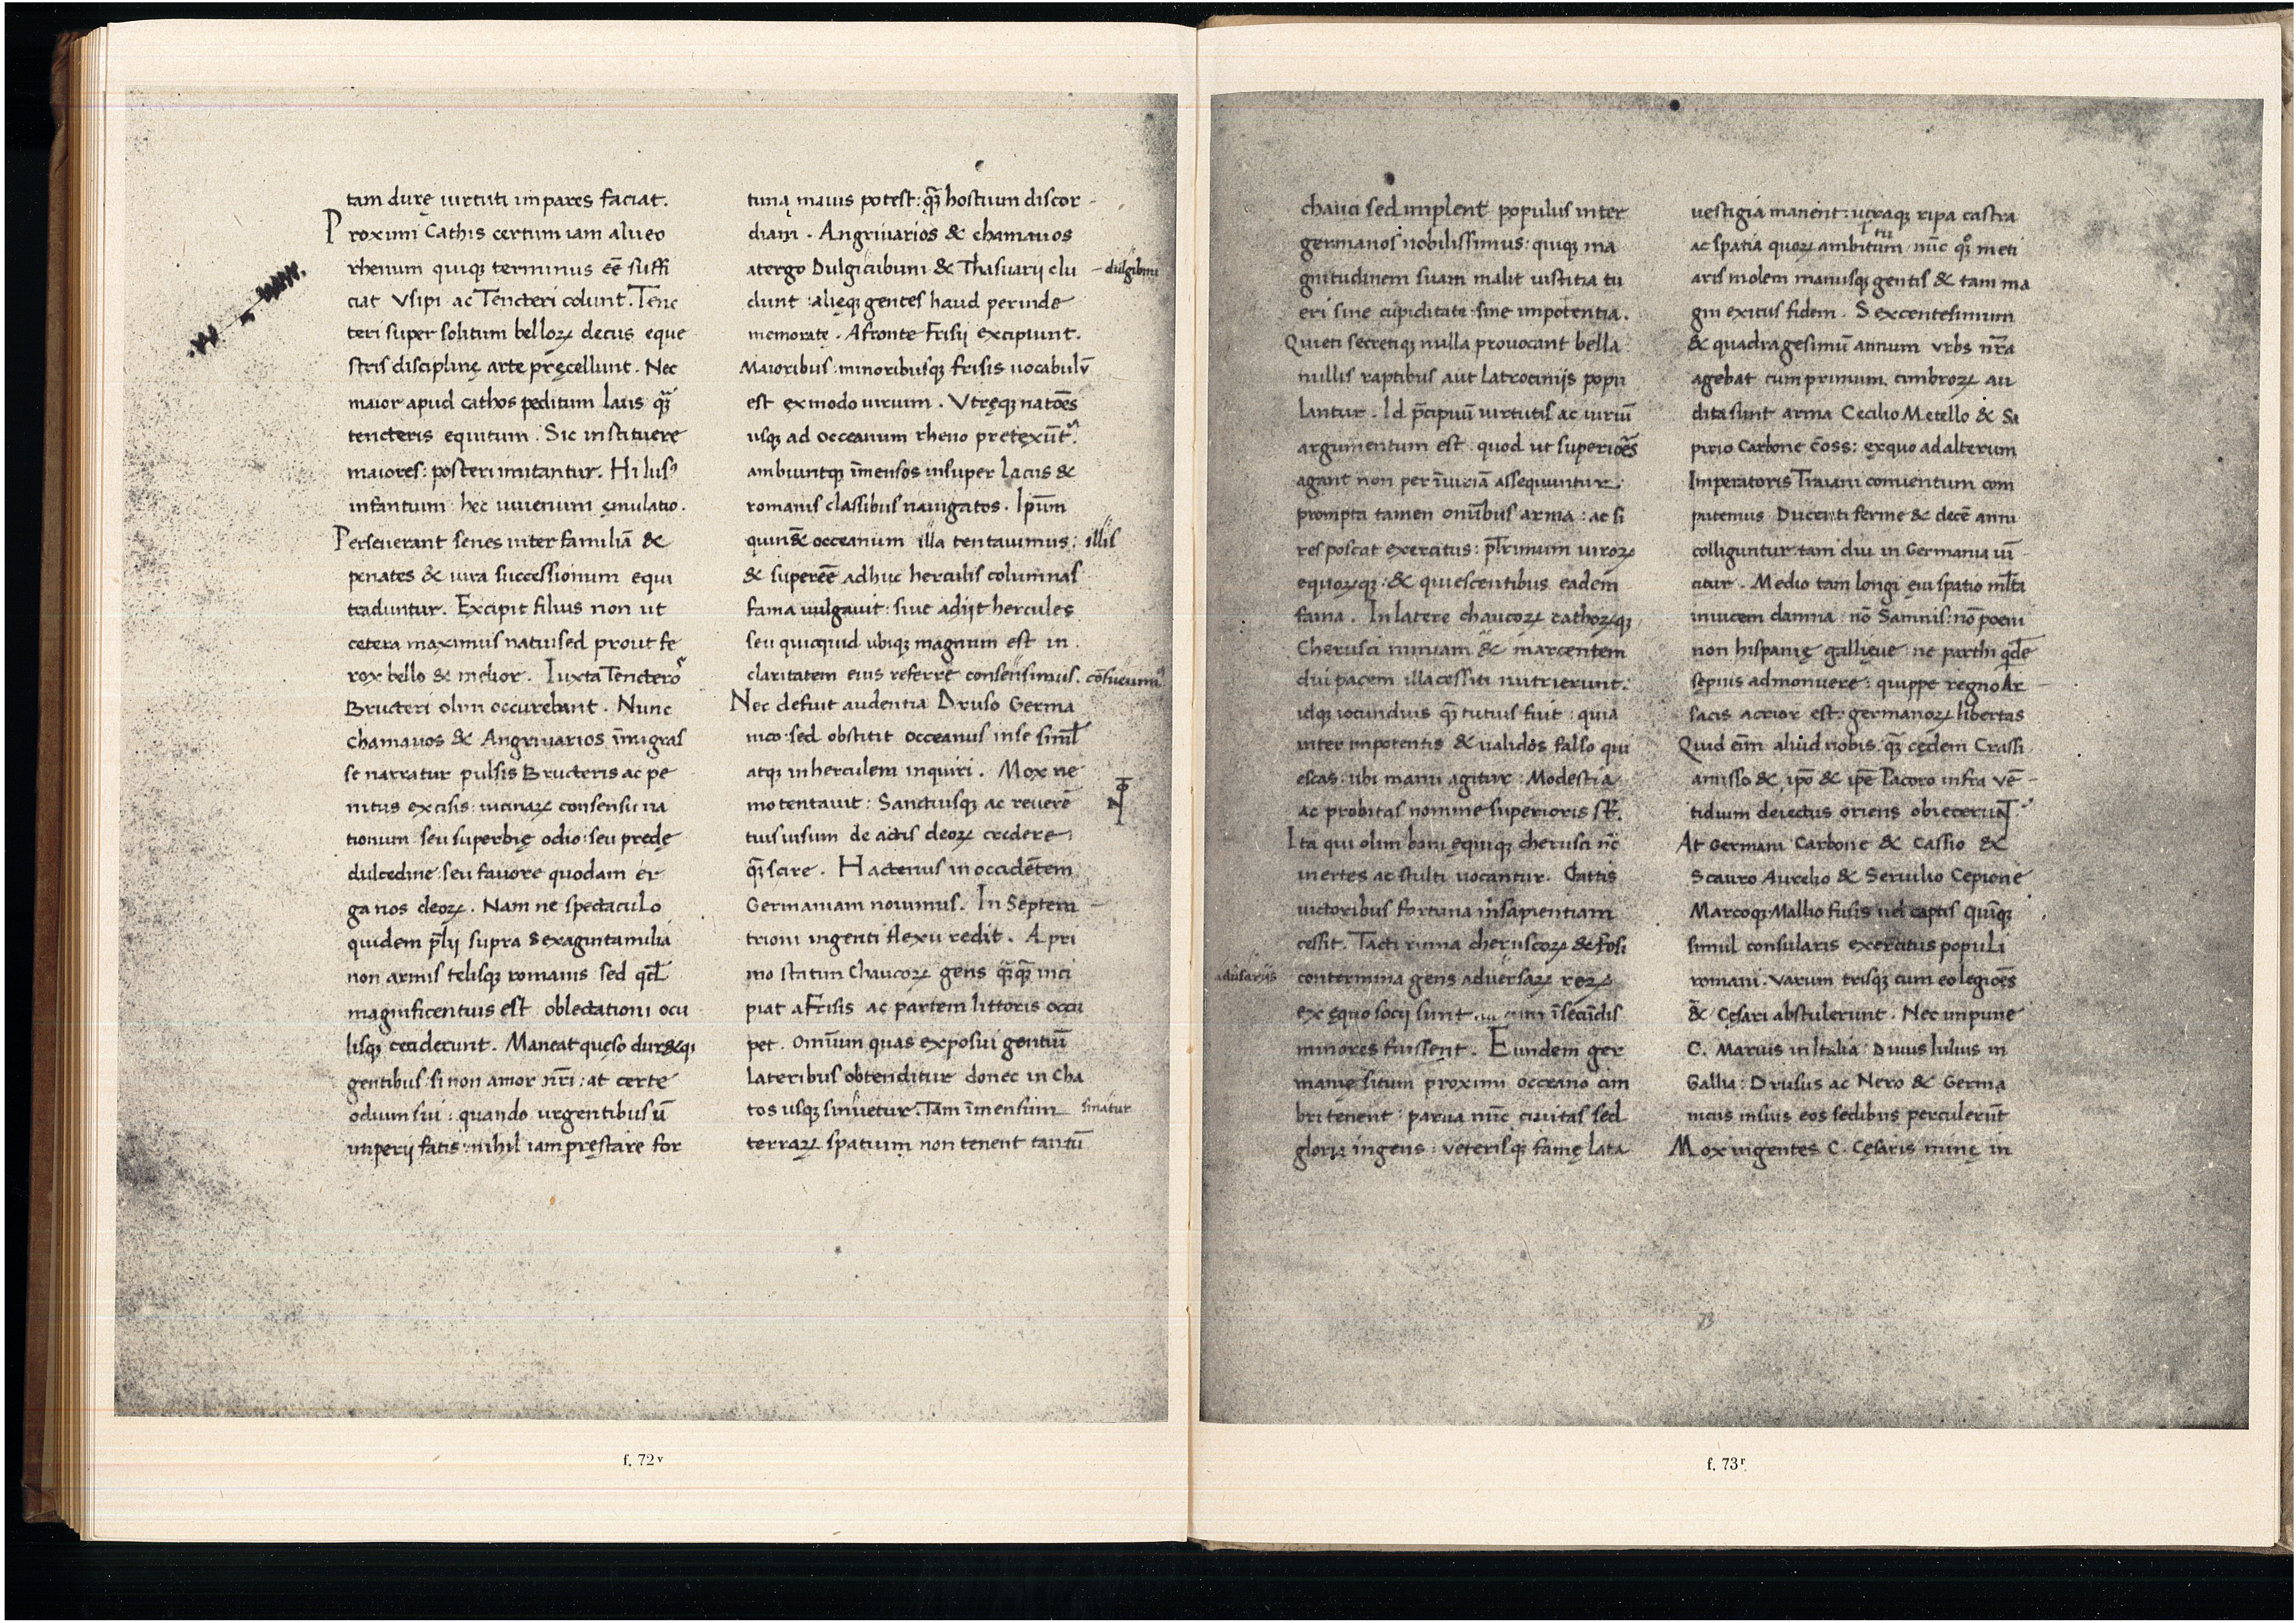 tam durę uirtuti impares faciat.
Proximi Cathis certum iam alueo
rhenum quiqꝫ terminus eē̄ suffi
ciat Vsipi ac Tencteri colunt. Tenc
teri super solitum belloꝝ decus eque
stris disciplinę arte pręcellunt. Nec
maior apud cathos peditum laus qᷓ
tencteris equitum. Sic instituere
maiores: posteri imitantur. Hi lusꝰ
infantum hec iuuenum ęmulatio.
Perseuerant senes inter familiā &
penates & iura successionum equi
traduntur. Excipit filius non ut
cetera maximus natu sed prout fe
rox bello & melior. Iuxta Tenctero
Bructeri olim occurebant. Nunc
chamauos & Angriuarios īmigras
se narratur pulsis Bructeris ac pe
nitus excisis: uicinaꝝ consensu na
tionum seu superbię odio: seu predę
dulcedine: seu fauore quodam er
ga nos deoꝝ. Nam ne spectaculo
quidem p̄lij supra Sexaginta milia
non armis telisqꝫ romanis sed qd̄
magnificentius est oblectationi ocu
lisqꝫ ceciderunt. Maneat quęso dur&qꝫ
gentibus: si non amor nr̄i: at certe
odium sui: quando urgentibus ū
imperij fatis: nihil iam pręstare for
tuna maius potest: qᷓ hostium discor
diam. Angriuarios & chamauos
atergo Dulgicubuni & Thasuarij clu
dulgibini
dunt: alięqꝫ gentes haud perinde
memoratę. Afronte Frisij excipiunt.
Maioribus: minoribusqꝫ frisis uocabulū
est ex modo uirium. Vtręqꝫ natōes
usqꝫ ad occeanum rheno pretexūt͛.
ambiuntqꝫ īmensos insuper lacus &
romanis classibus nauigatos. Ipūm
quin& occeanum illa tentauimus: illis
& supereē adhuc herculis columnas
fama uulgauit: siue adijt hercules
seu quicquid ubiqꝫ magnum est in
claritatem eius referre consensimus. cōsueuimꝰ
Nec defuit audentia Druso Germa
nico: sed obstitit occeanus in se siml̄
atqꝫ in herculem inquiri. Mox ne
mo tentauit: Sanctiusqꝫ ac reuerē
tius uisum de actis deoꝝ credere
qᷓ scire. Hactenus in occidētem
Germaniam nouimus. In Septem
trioni ingenti flexu redit. A pri
mo statim Chaucoꝝ gens qᷓqᷓ inci
piat a Frisis ac partem littoris occu
pet. Omīum quas exposui gentiū
Lateribus obtenditur donec in cha
tos usqꝫ sinuetur. Tam īmensum sinatur
terraꝝ spatium non tenent tantū
f. 72v
chauci sed implent populus inter
germanos nobilissimus: quiqꝫ ma
gnitudinem suam malit iustitia tu
eri sine cupiditate: sine impotentia.
Quieti secretiqꝫ nulla prouocant bella
nullis raptibus aut latrocinijs popu
lantur. Id p̄cipuū uirtutis ac uiriū
argumentum est quod ut superiōes
agant non per īiuriā assequuntur.
prompta tamen omībus arma: ac si
res poscat exercitus: pl̄rimum uiroꝝ
equoꝝqꝫ: & quiescentibus eadem
fama. In latere chaucoꝝ cathoꝝqꝫ
Cherusci nimiam & marcentem
diu pacem illacessiti nutrierunt:
idqꝫ iocundius qᷓ tutius fuit: quia
inter impotentis & ualidos falso qui
escas: ubi manu agitur: Modestia
ac probitas nomine superioris st̄.
Ita qui olim boni ęquiqꝫ cherusci nc̄
inertes ac stulti uocantur. Cattis
uictoribus fortuna in sapientiam
cessit. Tacti ruina cheruscoꝝ & Fosi
contermina gens aduersaꝝ reꝝ
aduersarijs
ex ęquo socij sunt cum ī secūdis
minores fuissent. Eundem ger
manię situm proximi occeano cim
bri tenent: parua nūc ciuitas sed
gloria ingens: ueterisqꝫ famę lata
uestigia manent: utraqꝫ ripa castra
ac spatia quoꝝ ambitum nūc qꝫ meti
aris molem manusqꝫ gentis & tam ma
gni exitus fidem. Sexcentesimum
& quadragesimū annum vrbs nr̄a
agebat cum primum cimbroꝝ au
dita sunt arma Cecilio Metello & Sa
pirio Carbone c̄oss: ex quo ad alterum
Imperatoris Traiani conuentum com
putemus Ducenti ferme & decē anni
colliguntur: tam diu in Germania uī
citur. Medio tam longi ęui spatio ml̄ta
inuicem damna: nō Samnis: nō poeni
non hispanię gallięue: ne parthi qdē
sępius admonuere: quippe regno Ar
sacis acrior est: germanoꝝ libertas
Quid eīm aliud nobis: qᷓ cędem Crassi
amisso & ipō & ipē Pacoro infra vē
tidium deiectus oriens obiecerit.
At Germani Carbone & Cassio &
Scauro Aurelio & Seruilio Cepione
Marcoqꝫ Mallio fusis uel captis quīqꝫ
simul consularis exercitus populi
romani. Varum trisqꝫ cum eo legiōes
& Cęsari abstulerunt. Nec impune
C. Marius in Italia: Diuus Iulius in
Gallia: Drusus ac Nero & Germa
nicus in suis eos sedibus perculerūt
Mox ingentes C. Cęsaris minę in
73
f. 73r